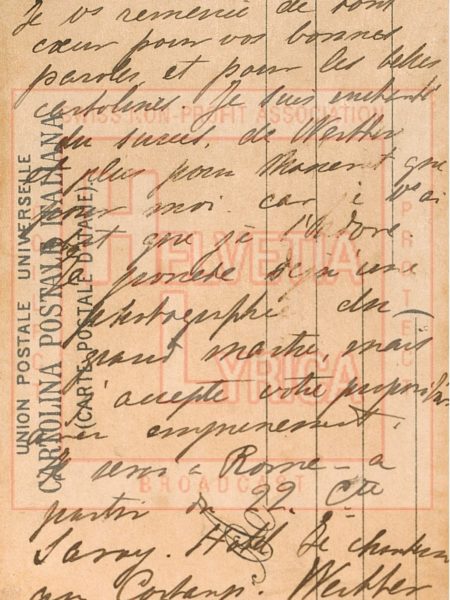 Je vs remercie de tout
cœur pour vos bonnes
paroles, et pour les belles
cartolines. Je suis enchanté
du succès, de Werther
et plus pour Massenet que
pour moi. car je vs ai
dit que je l'adore
Je possède déjà une
photographie du
grand maître, mais
j'accepte votre proposition
avec empressement.
Je serai à Rome – à
partir du 22. Cte
Savoy. Hotel Je chanterai
au Costanzi Werther
UNION POSTALE UNIVERSELLE
CARTOLINA POSTALE ITALIANA
(CARTE POSTALE D'ITALIE)
SWISS NON-PROFIT ASSOCIATION
HELVETIA
LYRICA
BROADCAST